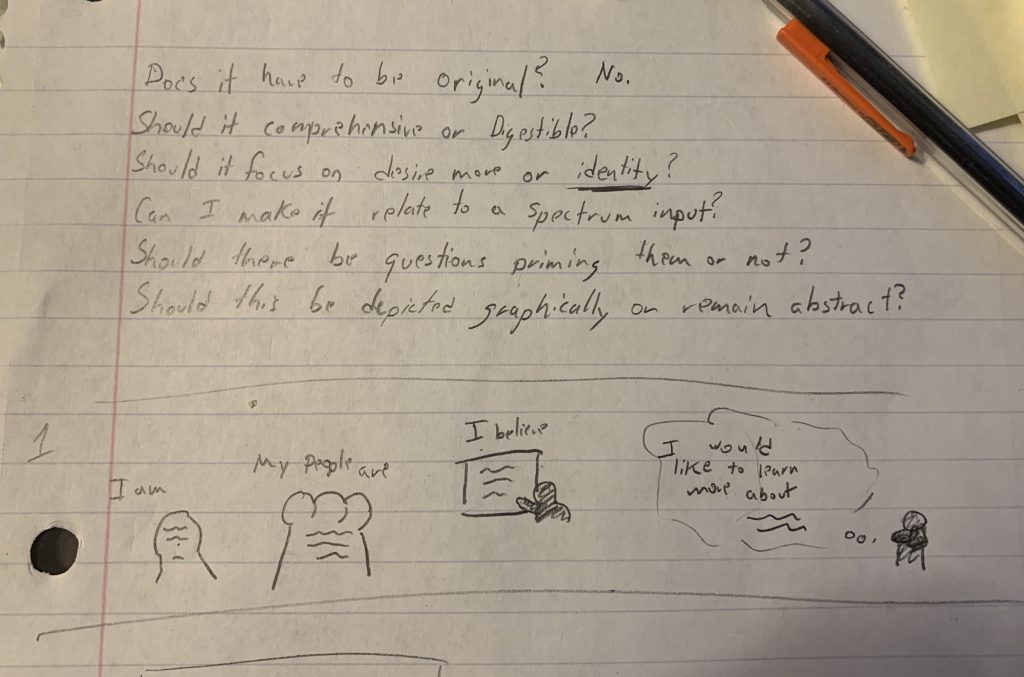 Does it have to be original? No.
Should it comprehensive or Digestible?
Should it focus on desire more or identity?
Can I make it relate to a spectrum input?
Should there be questions priming them or not?
Should this be depicted graphically or remain abstract?
1
I am
My people are
I believe
I would
like to learn
more about